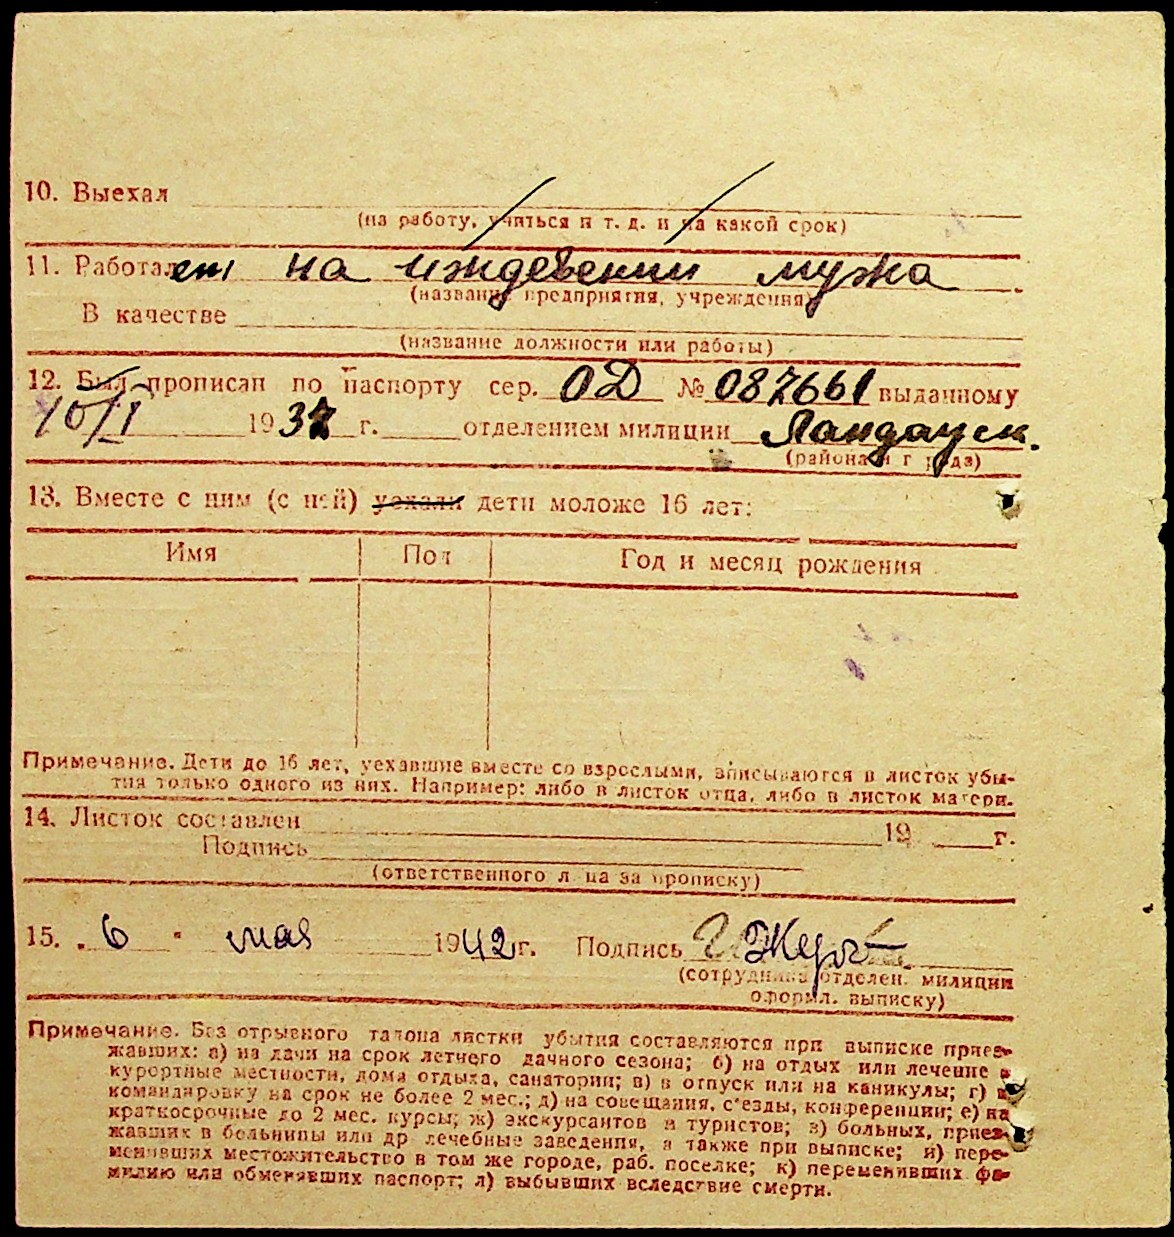 10. Выехал
(на работу, учиться и т. д. и на какой срок)
11. Работает на иждевении мужа
(название предприятия, учреждения)
В качестве
(название должности или работы)
12. Был прописан по паспорту сер. ОД № 087661 выданному
10/I 1937 г. отделением милиции Ландауск.
(района и города)
13. Вместе с ним (с ней) уехали дети моложе 16 лет:
Имя Пол Год и месяц рождения
Примечание. Дети до 16 лет, уехавшие вместе со взрослыми, вписываются в листок убы-
тия только одного из них. Например: либо в листок отца, либо в листок матери.
14. Листок составлен 19 г.
Подпись
(ответственного лица за прописку)
15. 6 " мая 1942 г. Подпись
(сотрудника отделен. милиции
оформл. выписку)
Примечание. Без отрывного талона листки убытия составляются при выписке приез-
жавших: а) на дачи на срок летнего дачного сезона; б) на отдых или лечение в
курортные местности, дома отдыха, санатории; в) в отпуск или на каникулы; г) в
командировку на срок не более 2 мес.; д) на совещания, с'езды, конференции; е) на
краткосрочные до 2 мес. курсы; ж) экскурсантов и туристов; з) больных, приез-
жавших в больницы или др лечебные заведения, а также при выписке; и) пере-
менивших местожительство в том же городе, раб. поселке; к) переменивших фа-
милию или обменявших паспорт; л) выбывших вследствие смерти.